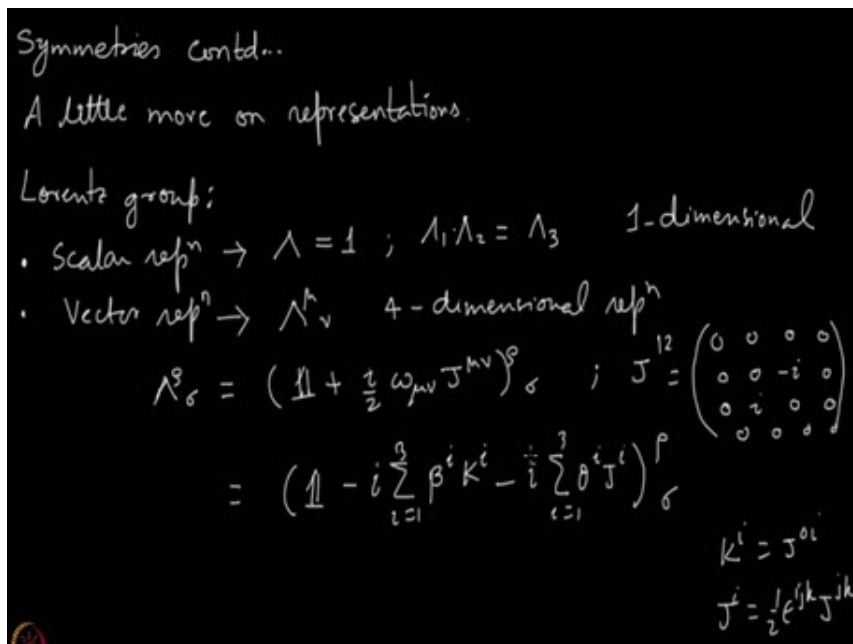 Symmetries contd...
A little more on representations.
Lorentz group:
• Scalar repⁿ → Λ = 1 ; Λ₁.Λ₂ = Λ₃ 1-dimensional
• Vector repⁿ → Λ^μ_ν 4-dimensional repⁿ
Λ^ρ_σ = (𝟙 + i/2 ω_μν J^μν)^ρ_σ ; J^12 = (0 0 0 0
0 0 -i 0
0 i 0 0
0 0 0 0)
= (𝟙 - i ∑_{i=1}^3 β^i K^i - i ∑_{i=1}^3 θ^i J^i)^ρ_σ
K^i = J^{0i}
J^i = 1/2 ε^{ijk} J^{jk}